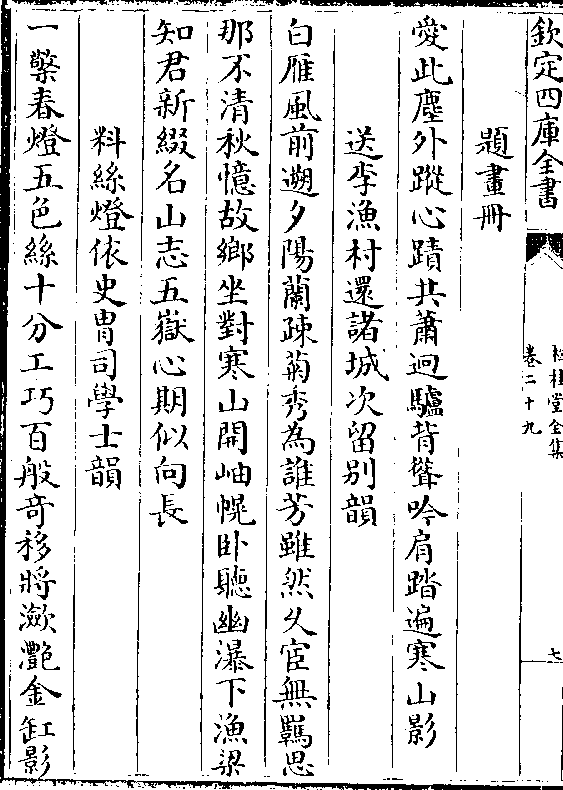 欽定四庫全書
松桂堂全集
卷二十九
七
題畫冊
愛此塵外蹤心蹟共蕭迥驢背聳吟肩踏遍寒山影
送李漁村還諸城次留别韻
白雁風前遡夕陽蘭疎菊秀為誰芳雖然久宦無羈思
那不清秋憶故鄉坐對寒山開岫幌卧聽幽瀑下漁梁
知君新綴名山志五嶽心期似向長
料絲燈依史胄司學士韻
一檠春燈五色絲十分工巧百般奇移將瀲灧金缸影